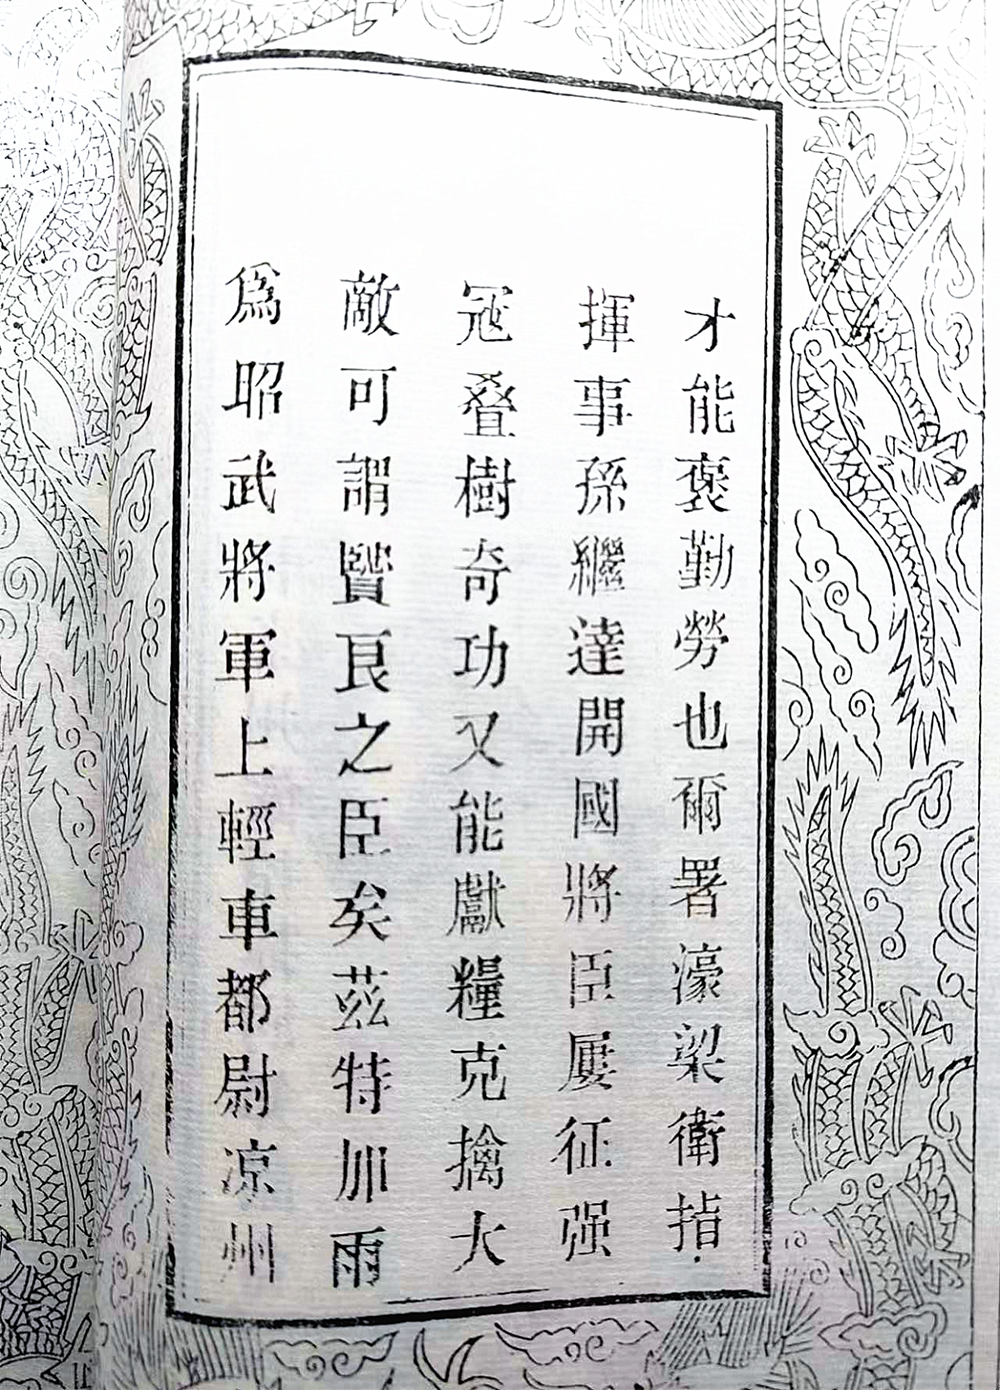 才能褒勤勞也爾署濠梁衛指
揮事孫繼達開國將臣屢征强
冦叠樹奇功又能獻糧克擒大
敵可謂賢良之臣矣茲特加爾
爲昭武將軍上輕車都尉凉州